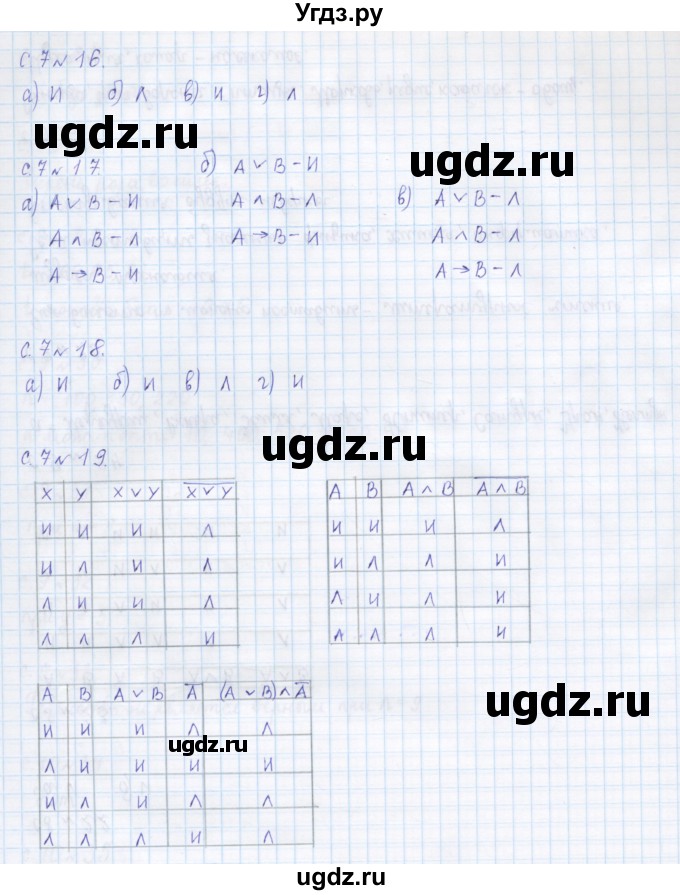 Угдз.ру
С. 7 № 16.
а) И б) Л в) И г) Л
ugdz.ru
ugdz.ru
С. 7 № 17. б) A ∨ B – И
а) A ∨ B – И A ∧ B – Л в) A ∨ B – Л
A ∧ B – Л A → B – И A ∧ B – Л
A → B – И A → B – Л
С. 7 № 18.
а) И б) И в) Л г) И
ugdz.ru
С. 7 № 19.
X Y X ∨ Y X̅ ̅∨̅ ̅Y̅
И И И Л
И Л И Л
Л И И Л
Л Л Л И
A B A ∧ B A̅ ̅∧̅ ̅B̅
И И И Л
И Л Л И
Л И Л И
Л Л Л И
A B A ∨ B A̅ (A ∨ B) ∧ A̅
И И И Л Л
Л И И И И
И Л И Л Л
Л Л Л И Л
ugdz.ru
ugdz.ru
ugdz.ru